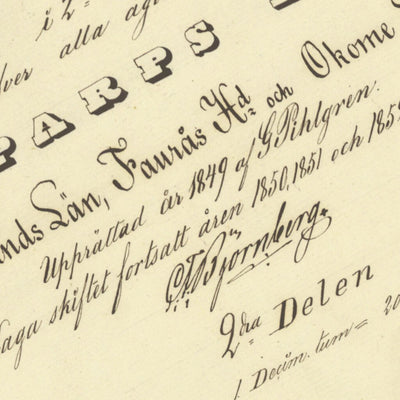 i 2
öfver alla äg
PARPS
ands Län, Faurås Hd och Okome
Upprättad år 1849 af G Pihlgren.
Laga skiftet fortsatt åren 1850, 1851 och 185
C.F. Björnberg.
2dra Delen
1 Decim. tum = 20